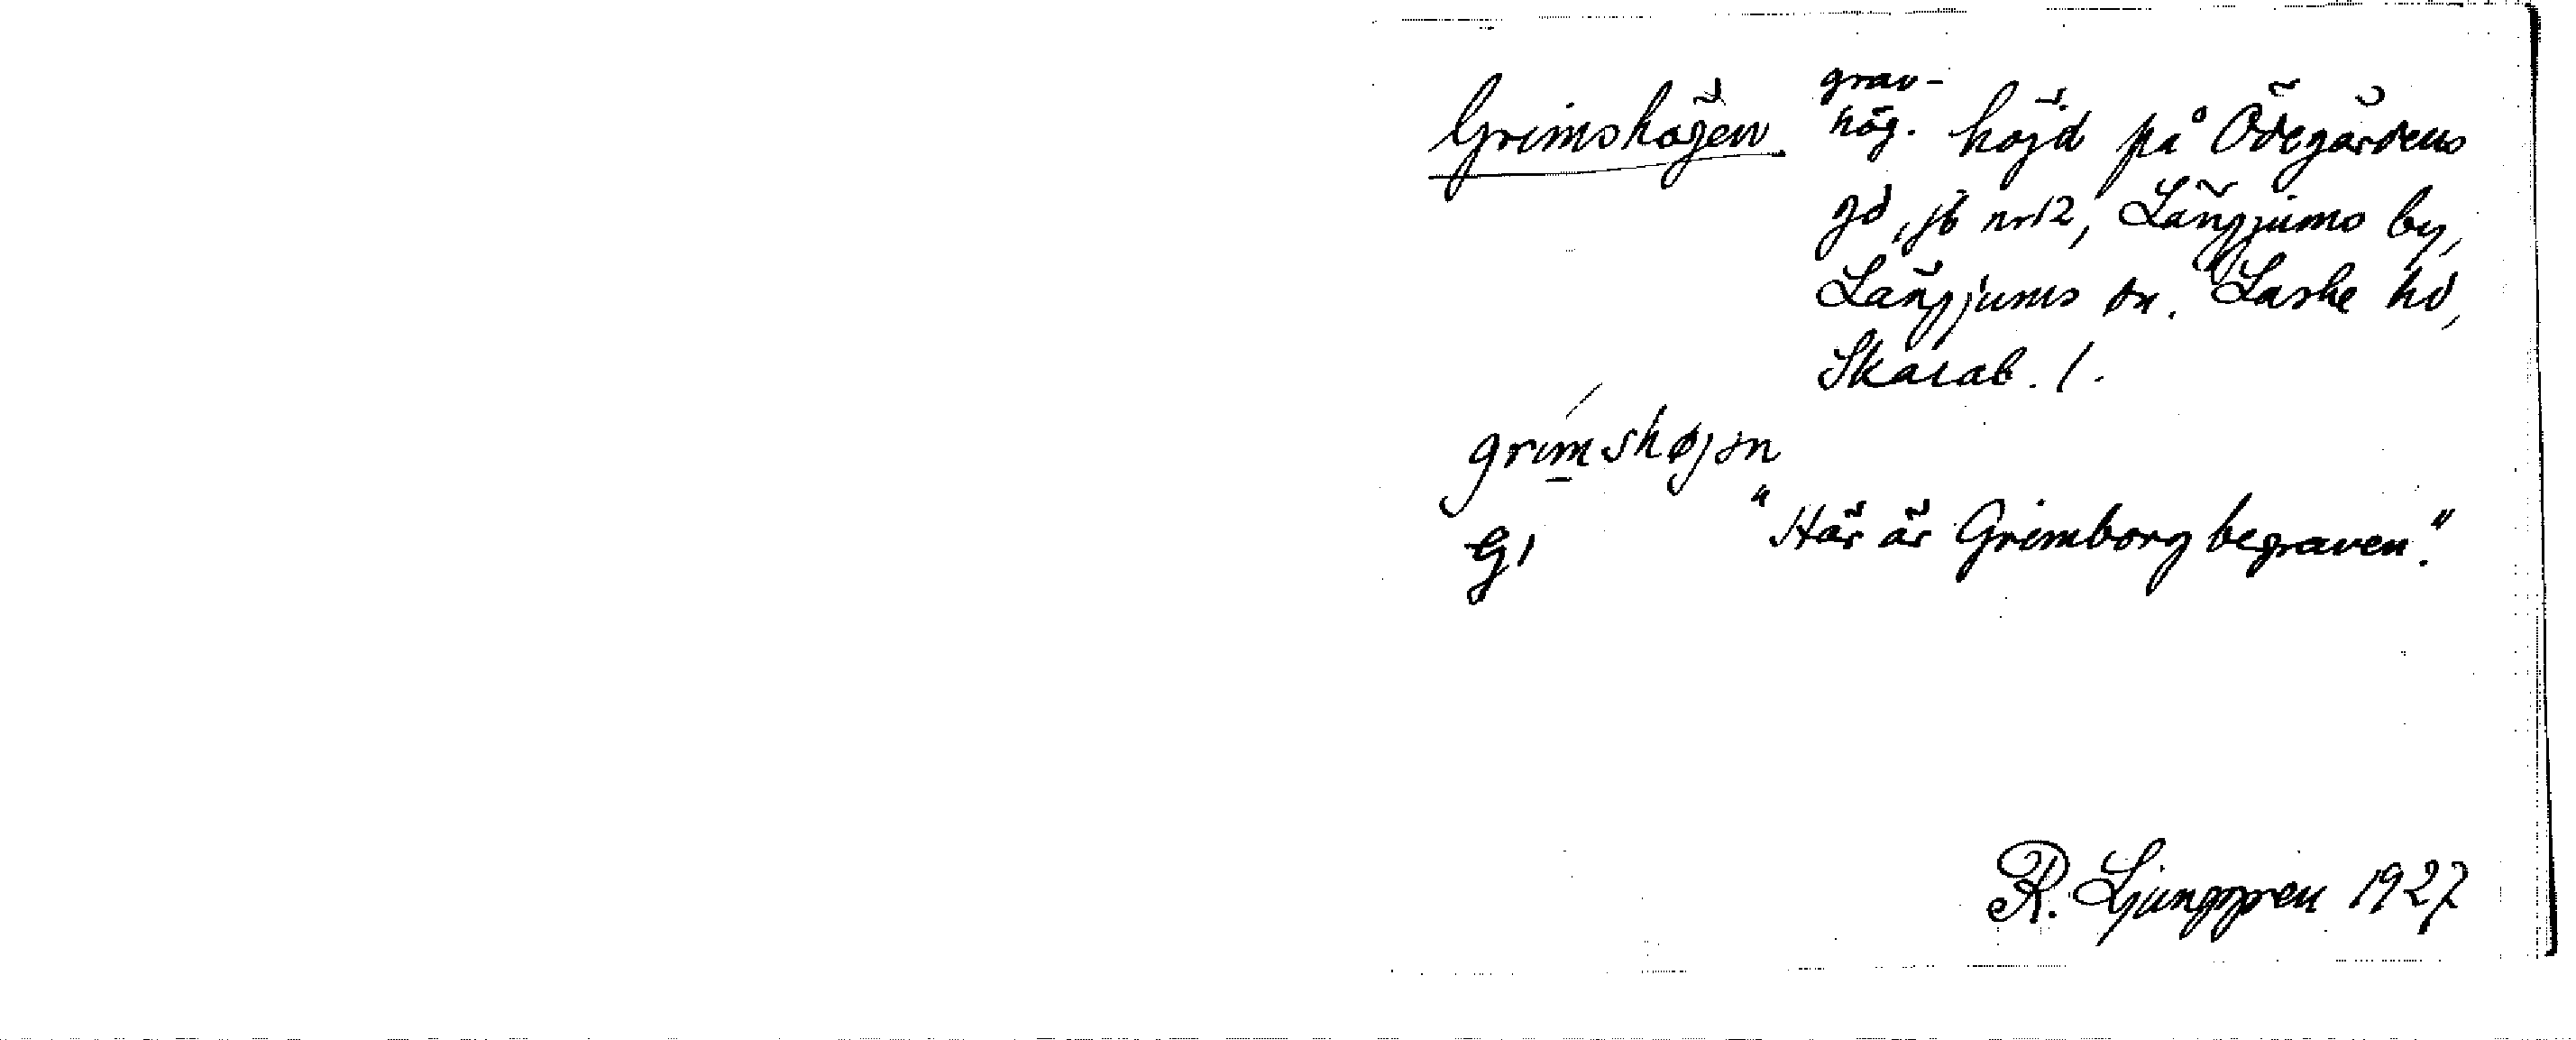 Grimshögen grav-hög. höjd på Ödegårdens
gd, jb nr 12, Långjums by,
Långjums sn. Laske hd,
Skarab. l.
grimshøjən
G1 "Här är Grimborg begraven."
R. Ljunggren 1927